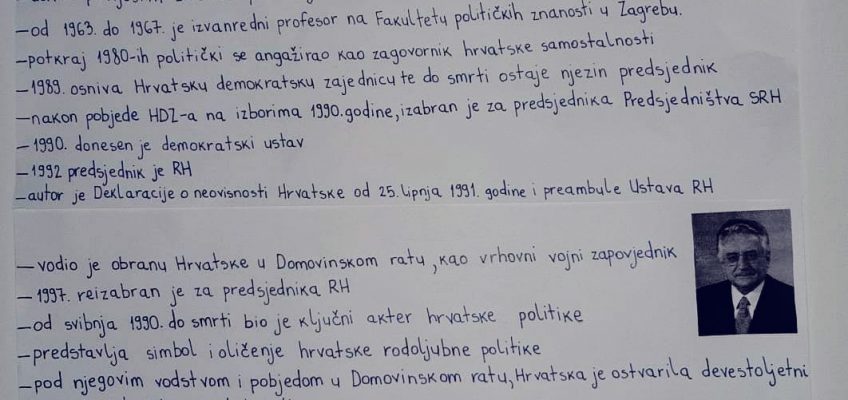 –od 1963. do 1967. je izvanredni profesor na Fakultetu političkih znanosti u Zagrebu.
–potkraj 1980-ih politički se angažirao kao zagovornik hrvatske samostalnosti
–1989. osniva Hrvatsku demokratsku zajednicu te do smrti ostaje njezin predsjednik
–nakon pobjede HDZ-a na izborima 1990.godine, izabran je za predsjednika Predsjedništva SRH
–1990. donesen je demokratski ustav
–1992 predsjednik je RH
–autor je Deklaracije o neovisnosti Hrvatske od 25. lipnja 1991. godine i preambule Ustava RH
–vodio je obranu Hrvatske u Domovinskom ratu, kao vrhovni vojni zapovjednik
–1997. reizabran je za predsjednika RH
–od svibnja 1990. do smrti bio je ključni akter hrvatske politike
–predstavlja simbol i oličenje hrvatske rodoljubne politike
–pod njegovim vodstvom i pobjedom u Domovinskom ratu, Hrvatska je ostvarila devestoljetni